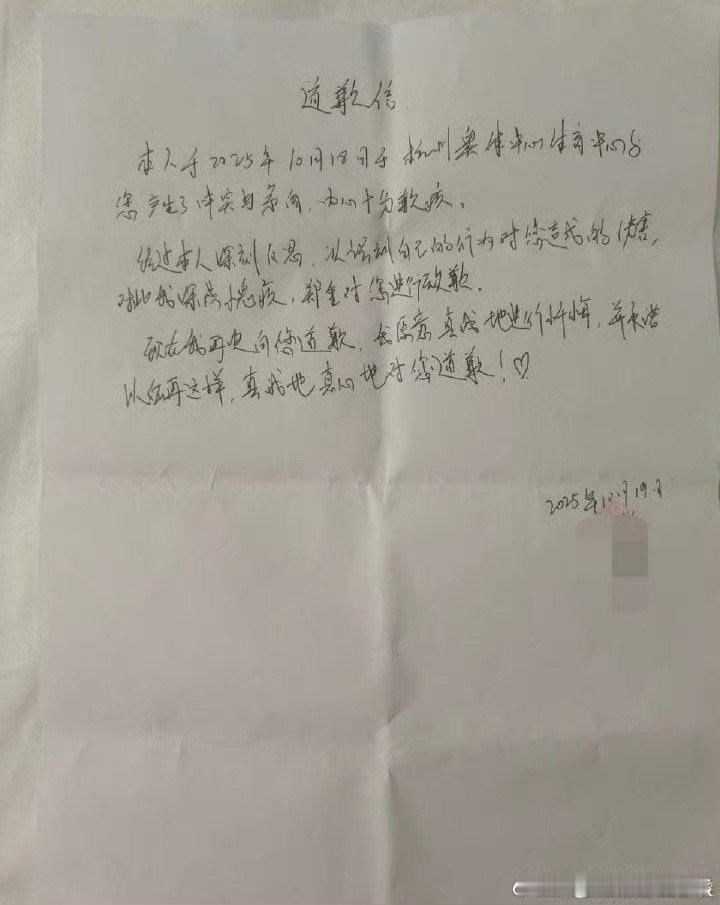 道歉信
本人于2025年10月18日于杭州奥体中心体育中心与
您产生了冲突与矛盾，内心十分歉疚。
经过本人深刻反思，认识到自己的行为对您造成的伤害，
对此我深感愧疚，郑重对您进行致歉。
现在我再次向您道歉，我愿意真诚地进行忏悔，并承诺
以后再这样，真诚地真心地对您道歉！♡
2025年10月19日